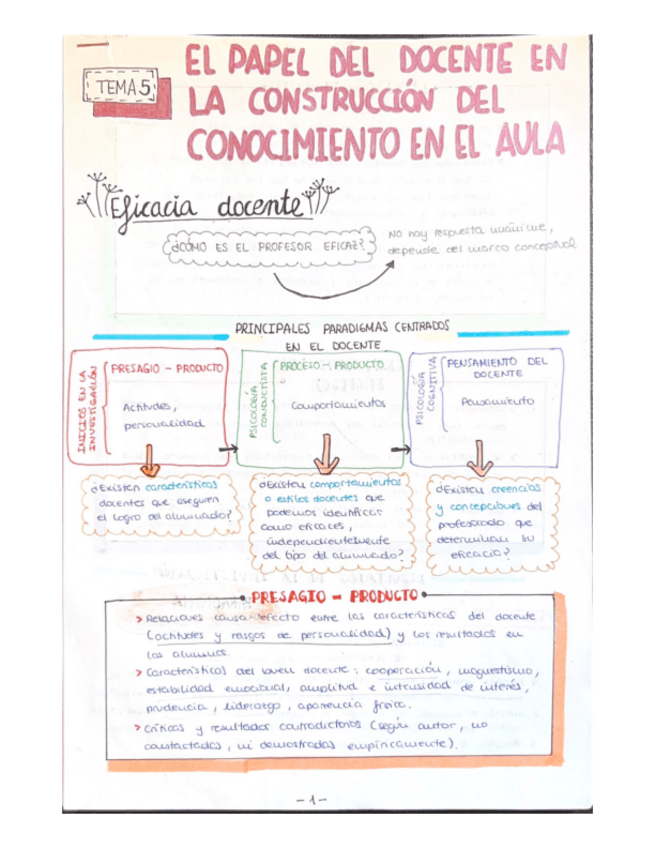 TEMA 5
EL PAPEL DEL DOCENTE EN
LA CONSTRUCCIÓN DEL
CONOCIMIENTO EN EL AULA
Eficacia docente
¿CÓMO ES EL PROFESOR EFICAZ?
No hay respuesta unánime,
depende del marco conceptual
PRINCIPALES PARADIGMAS CENTRADOS
EN EL DOCENTE
INICIOS EN LA
INVESTIGACIÓN
PRESAGIO - PRODUCTO
Actitudes,
personalidad
PSICOLOGÍA
CONDUCTISTA
PROCESO - PRODUCTO
Comportamientos
PSICOLOGÍA
COGNITIVA
PENSAMIENTO DEL
DOCENTE
Pensamiento
¿Existen características
docentes que aseguren
el logro del alumnado?
¿Existen comportamientos
o estilos docentes que
podemos identificar
como eficaces,
independientemente
del tipo del alumnado?
¿Existen creencias
y concepciones del
profesorado que
determinan su
eficacia?
PRESAGIO - PRODUCTO
> Relaciones causa-efecto entre las características del docente
(actitudes y rasgos de personalidad) y los resultados en
los alumnos.
> Características del buen docente: cooperación, magnetismo,
estabilidad emocional, amplitud e intensidad de interés,
prudencia, liderazgo, apariencia física.
> Críticas y resultados contradictorios (según autor, no
constactados, ni demostradas empíricamente).
- 1 -